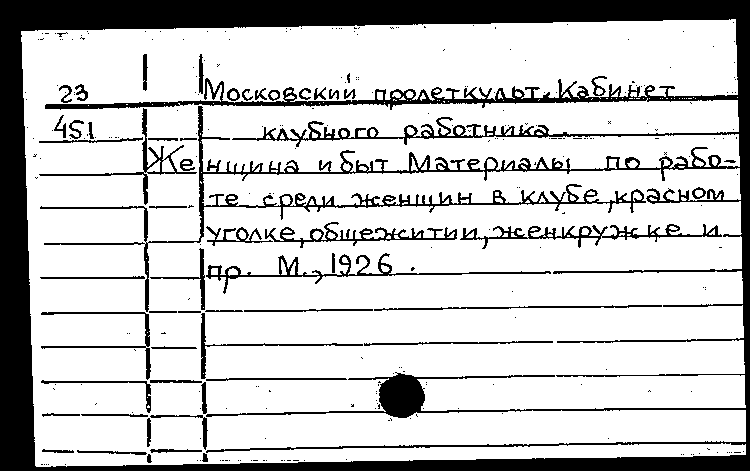 23 Московский пролеткульт. Кабинет
451 клубного работника.
Женщина и быт Материалы по рабо-
те среди женщин в клубе, красном
уголке, общежитии, женкружке и
пр. М., 1926.